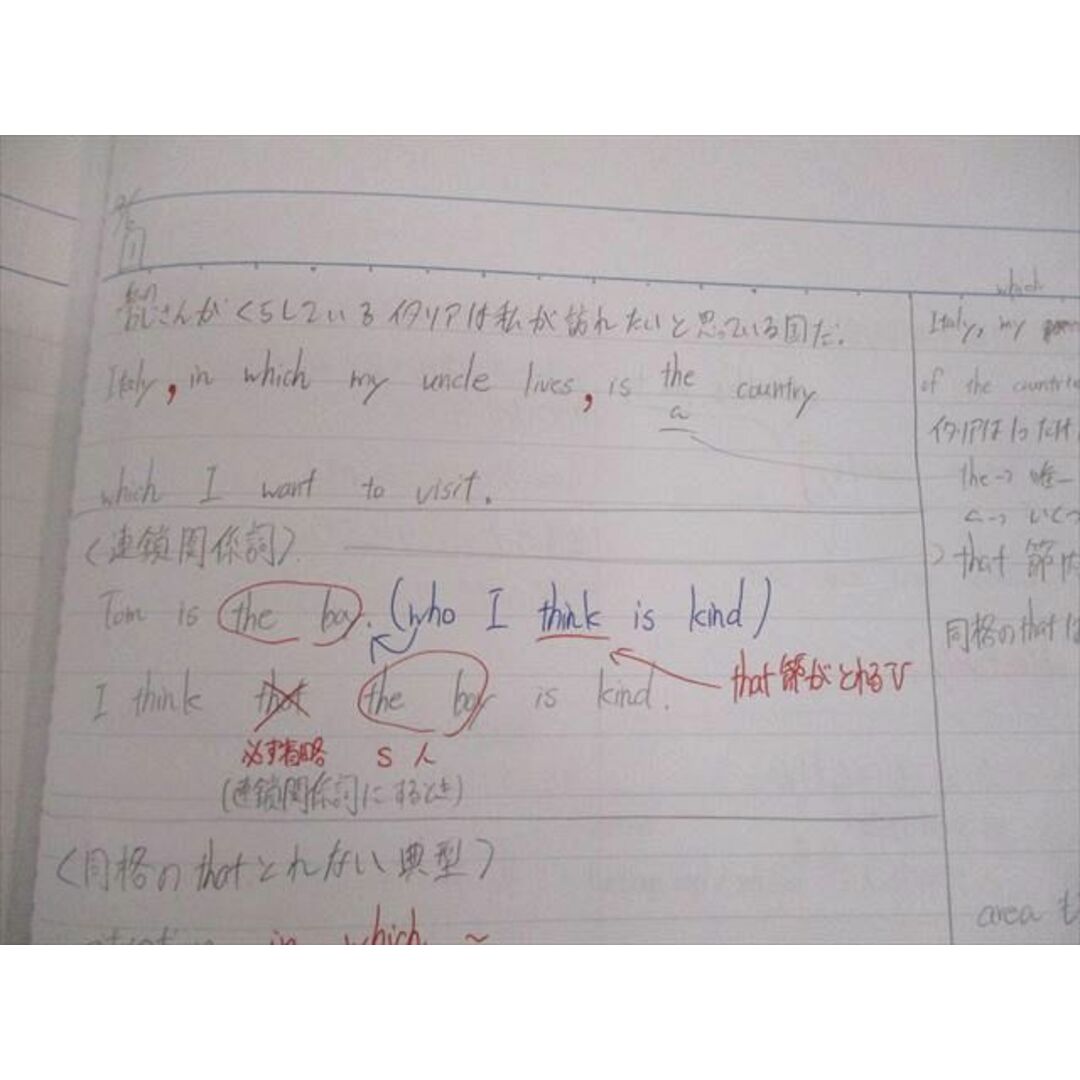 私の
おじさんがくらしているイタリアは私が訪れたいと思っている国だ.
Italy, in which my uncle lives, is the country
a
which I want to visit.
〈連鎖関係詞〉
Tom is the boy. (who I think is kind)
that節がとれるV
I think that the boy is kind.
必ず省略 S 人
(連鎖関係詞にするとき)
〈同格のthatとれない典型〉
in which ~
which
Italy, my
of the countries
イタリアは1つだけ
the→唯一
a→いくつ
that 節内
同格のthatは
area